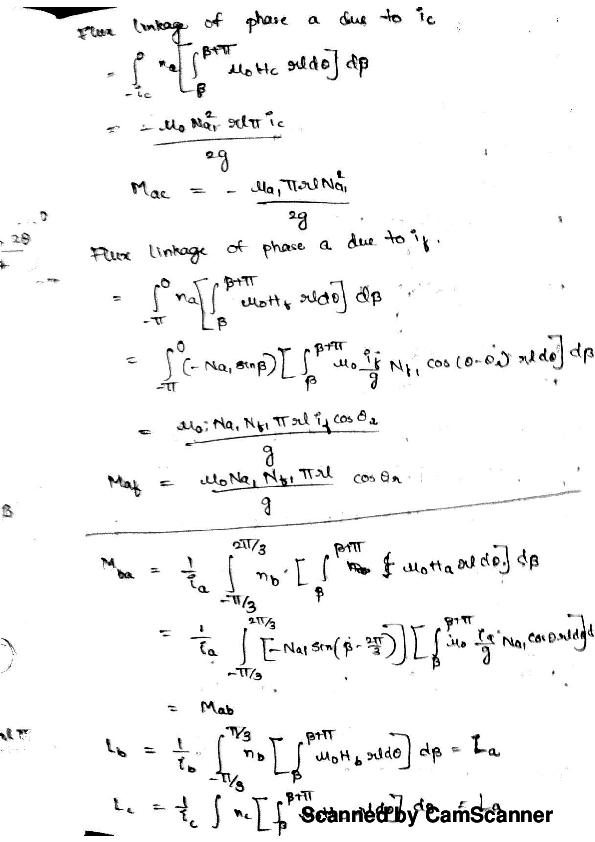 Flux linkage of phase a due to ic
= ∫_{-ic}^{0} na [∫_{β}^{β+π} μ0 Hc rl dθ] dβ
= - μ0 Na1² rlπ ic / 2g
Mac = - μa1 π rl Na1² / 2g
2θ
Flux linkage of phase a due to if.
= ∫_{-π}^{0} na [∫_{β}^{β+π} μ0 Hf rl dθ] dβ
= ∫_{-π}^{0} (- Na1 sinβ) [∫_{β}^{β+π} μ0 if/g Nf1 cos(θ-θr) rl dθ] dβ
= μ0 Na1 Nf1 π rl if cos θr / g
Maf = μ0 Na1 Nf1 π rl / g cos θr
B
Mba = 1/ia ∫_{-π/3}^{2π/3} nb [∫_{β}^{β+π} μ0 Ha rl dθ] dβ
= 1/ia ∫_{-π/3}^{2π/3} [-Na1 sin(β - 2π/3)] [∫_{β}^{β+π} μ0 ia/g Na1 cosθ rl dθ] d
= Mab
rlπ
Lb = 1/ib ∫_{-π/3}^{π/3} nb [∫_{β}^{β+π} μ0 Hb rl dθ] dβ = La
Lc = 1/ic ∫ nc [∫_{β}^{β+π} dβ = La
Scanned by CamScanner